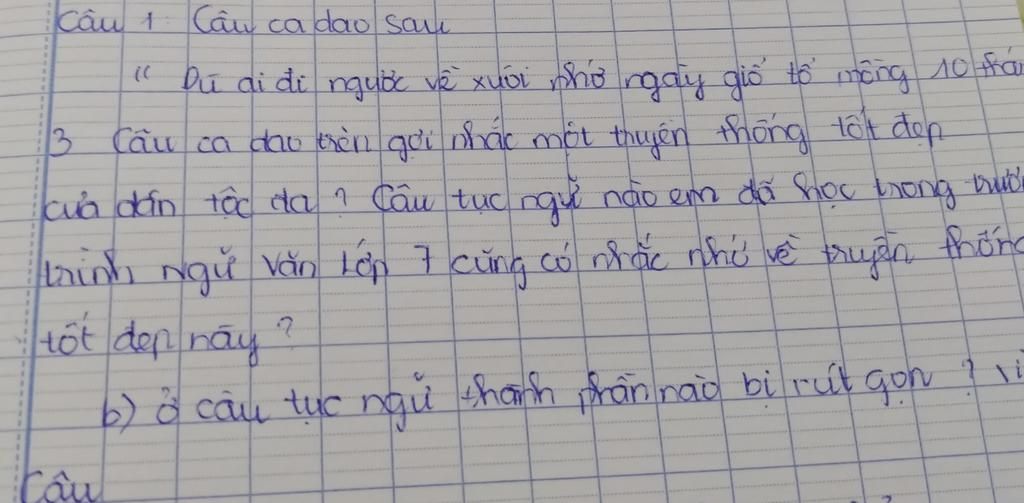 Câu 1 Câu ca dao sau
" Dù ai đi ngược về xuôi nhớ ngày giỗ tổ mồng 10 thá
3 Câu ca dao trên gợi nhắc một thuyên thống tốt đẹp
của dân tộc ta ? Câu tục ngữ nào em đã học trong trươ
trình ngữ văn lớp 7 cũng có nhắc nhở về truyền thống
tốt đẹp này ?
b) ở câu tục ngữ thành phần nào bị rút gọn ? vì
Câu